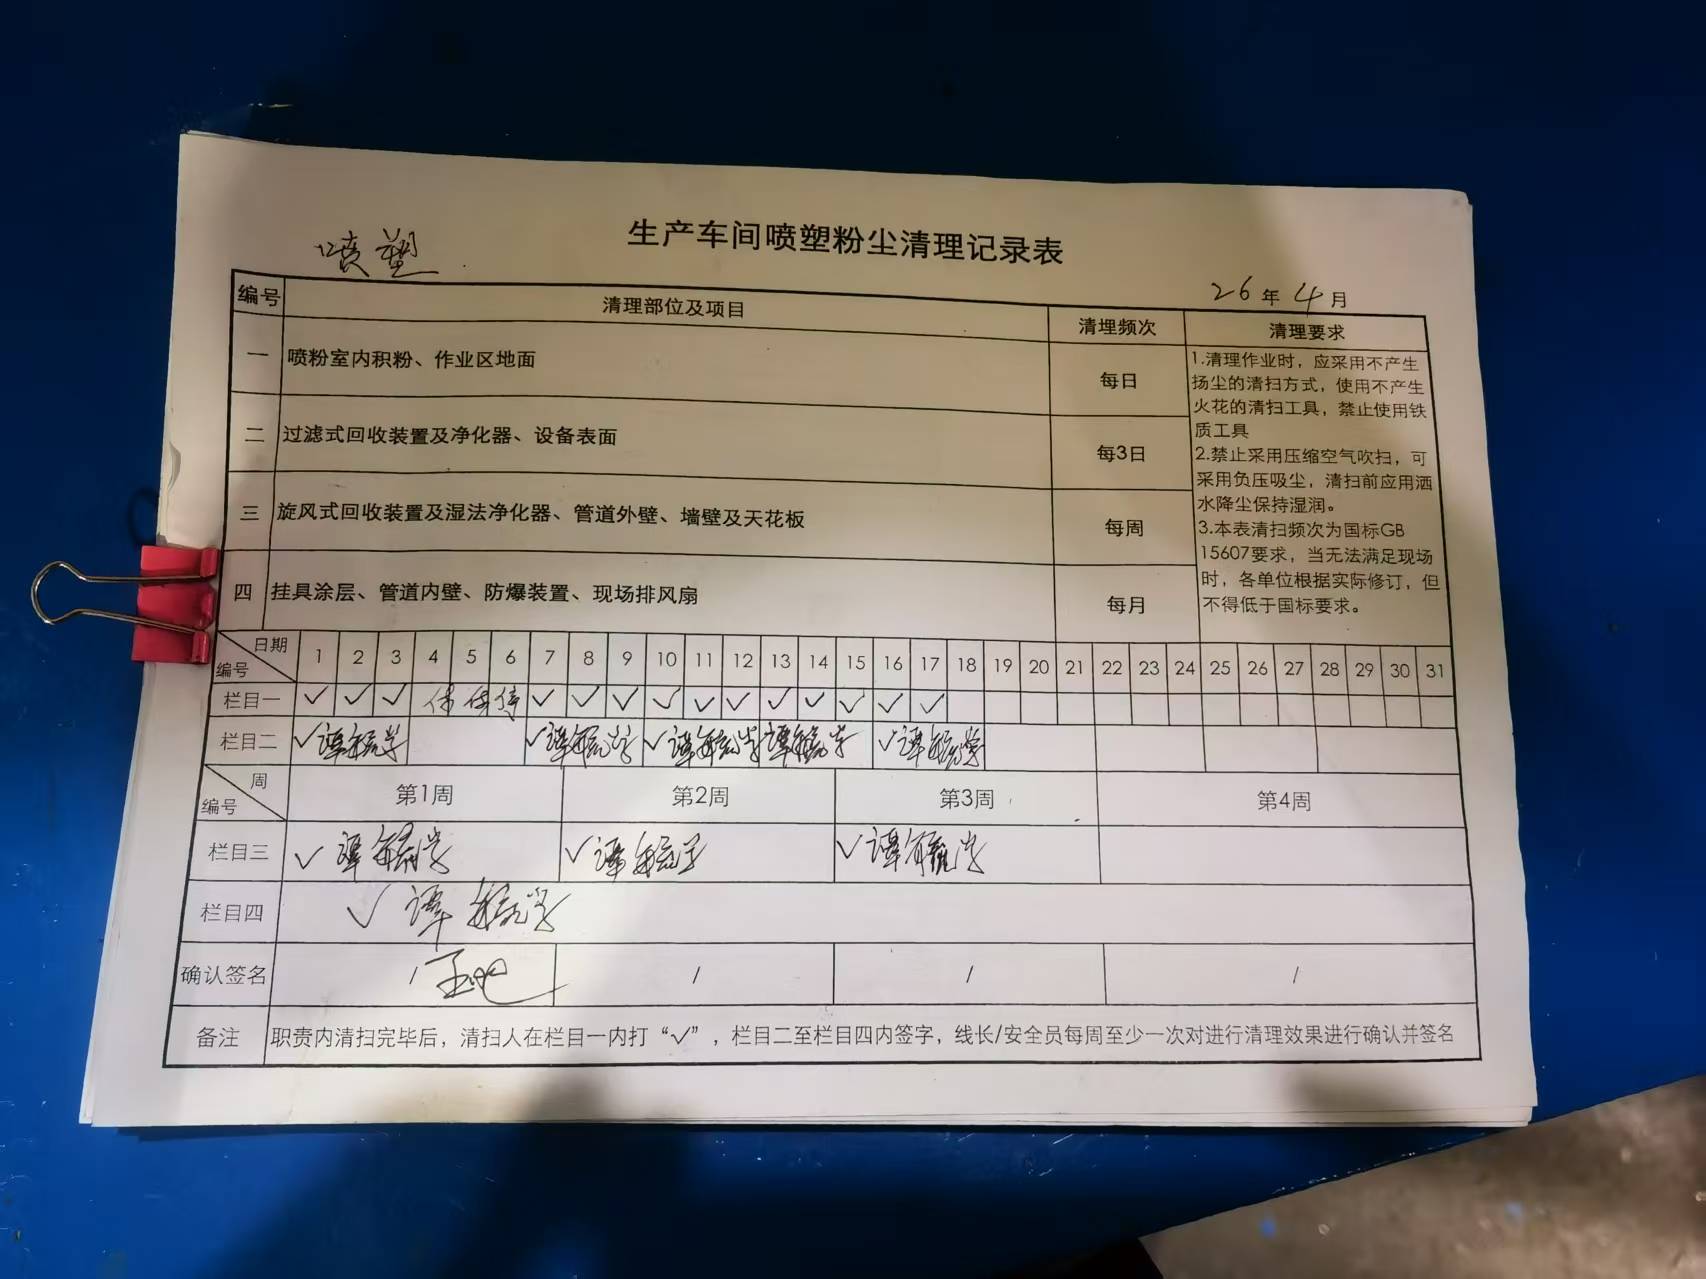 生产车间喷塑粉尘清理记录表
喷塑
26年4月
编号 清理部位及项目 清理频次 清理要求
一 喷粉室内积粉、作业区地面 每日
二 过滤式回收装置及净化器、设备表面 每3日
三 旋风式回收装置及湿法净化器、管道外壁、墙壁及天花板 每周
四 挂具涂层、管道内壁、防爆装置、现场排风扇 每月
1.清理作业时，应采用不产生
扬尘的清扫方式，使用不产生
火花的清扫工具，禁止使用铁
质工具
2.禁止采用压缩空气吹扫，可
采用负压吸尘，清扫前应用洒
水降尘保持湿润。
3.本表清扫频次为国标GB
15607要求，当无法满足现场
时，各单位根据实际修订，但
不得低于国标要求。
日期 编号 1 2 3 4 5 6 7 8 9 10 11 12 13 14 15 16 17 18 19 20 21 22 23 24 25 26 27 28 29 30 31
栏目一 ✓ ✓ ✓ ✓ ✓ ✓ ✓ ✓ ✓ ✓ ✓ ✓ ✓ ✓
栏目二 ✓ ✓ ✓ ✓
周 编号 第1周 第2周 第3周 第4周
栏目三 ✓ ✓ ✓
栏目四 ✓
确认签名 / / / /
备注 职责内清扫完毕后，清扫人在栏目一内打“✓”，栏目二至栏目四内签字，线长/安全员每周至少一次对进行清理效果进行确认并签名